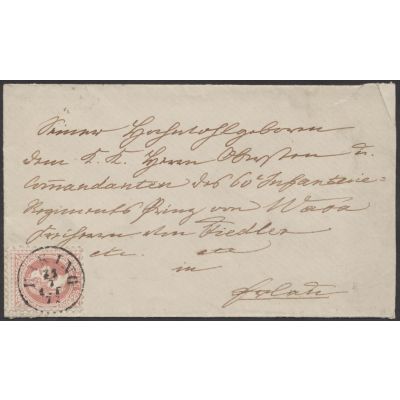 Seiner Hochwohlgeboren
dem K. K. Herrn Obersten &
Commandanten des 60 Infanterie-
Regiments Prinz von Wasa
Freiherrn von Fiedler
etc. etc
in
Erlau